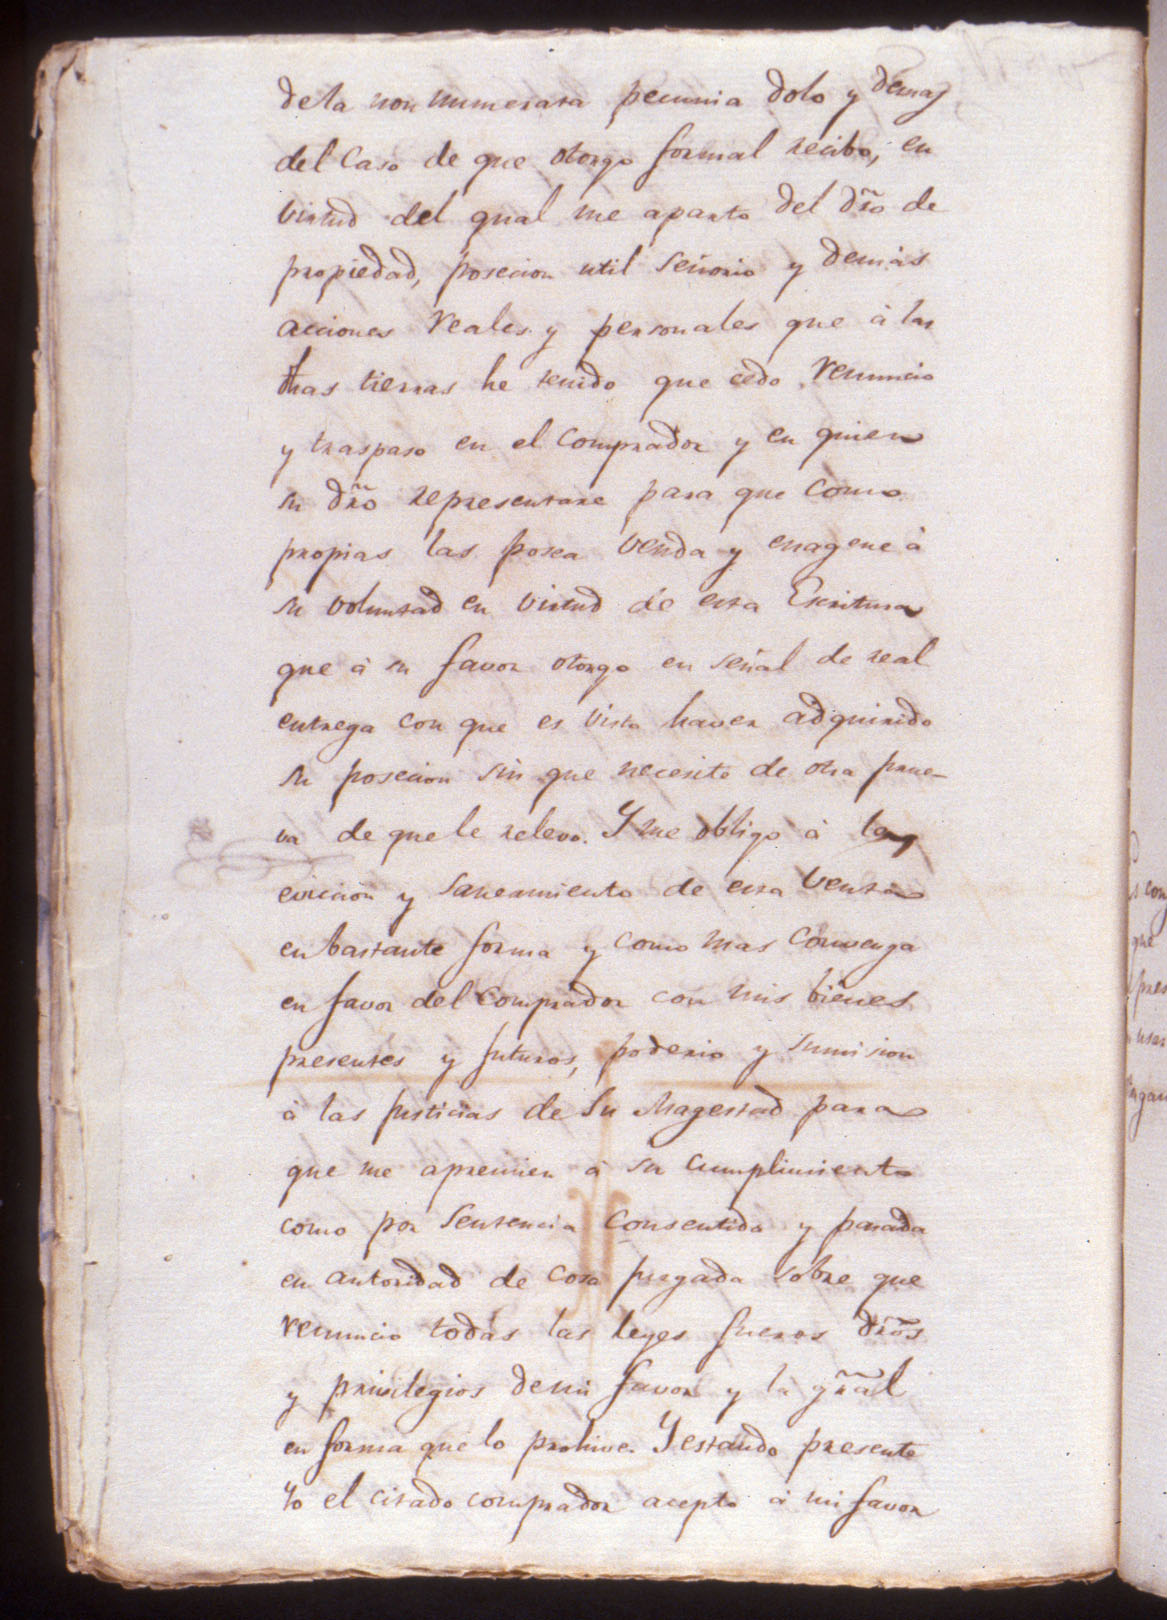 dela non numerata pecunia dolo y demas
del Caso de que otorgo formal recibo, en
virtud del qual me aparto del dr̃o de
propiedad, posecion util señorio y demàs
acciones reales y personales que à las
dhas tierras he tenido que cedo renuncio
y traspaso en el Comprador y en quien
su dr̃o representare para que como
propias las posea venda y enagene à
su voluntad en virtud de esta Escritura
que à su favor otorgo en señal de real
entrega con que es visto haver adquirido
su posecion sin que necesite de otra prue-
va de que le relevo. Y me obligo à la
eviccion y saneamiento de esta venta
en bastante forma y como mas convenga
en favor del Comprador con mis bienes
presentes y futuros, poderio y sumision
à las Justicias de Su Magestad para
que me apremien à su cumplimiento
como por Sentencia consentida y pasada
en autoridad de cosa juzgada sobre que
renuncio todas las leyes fueros dr̃os
y privilegios de mi favor y la gr̃al
en forma que lo prohive. Y estando presente
Yo el citado comprador acepto à mi favor
que